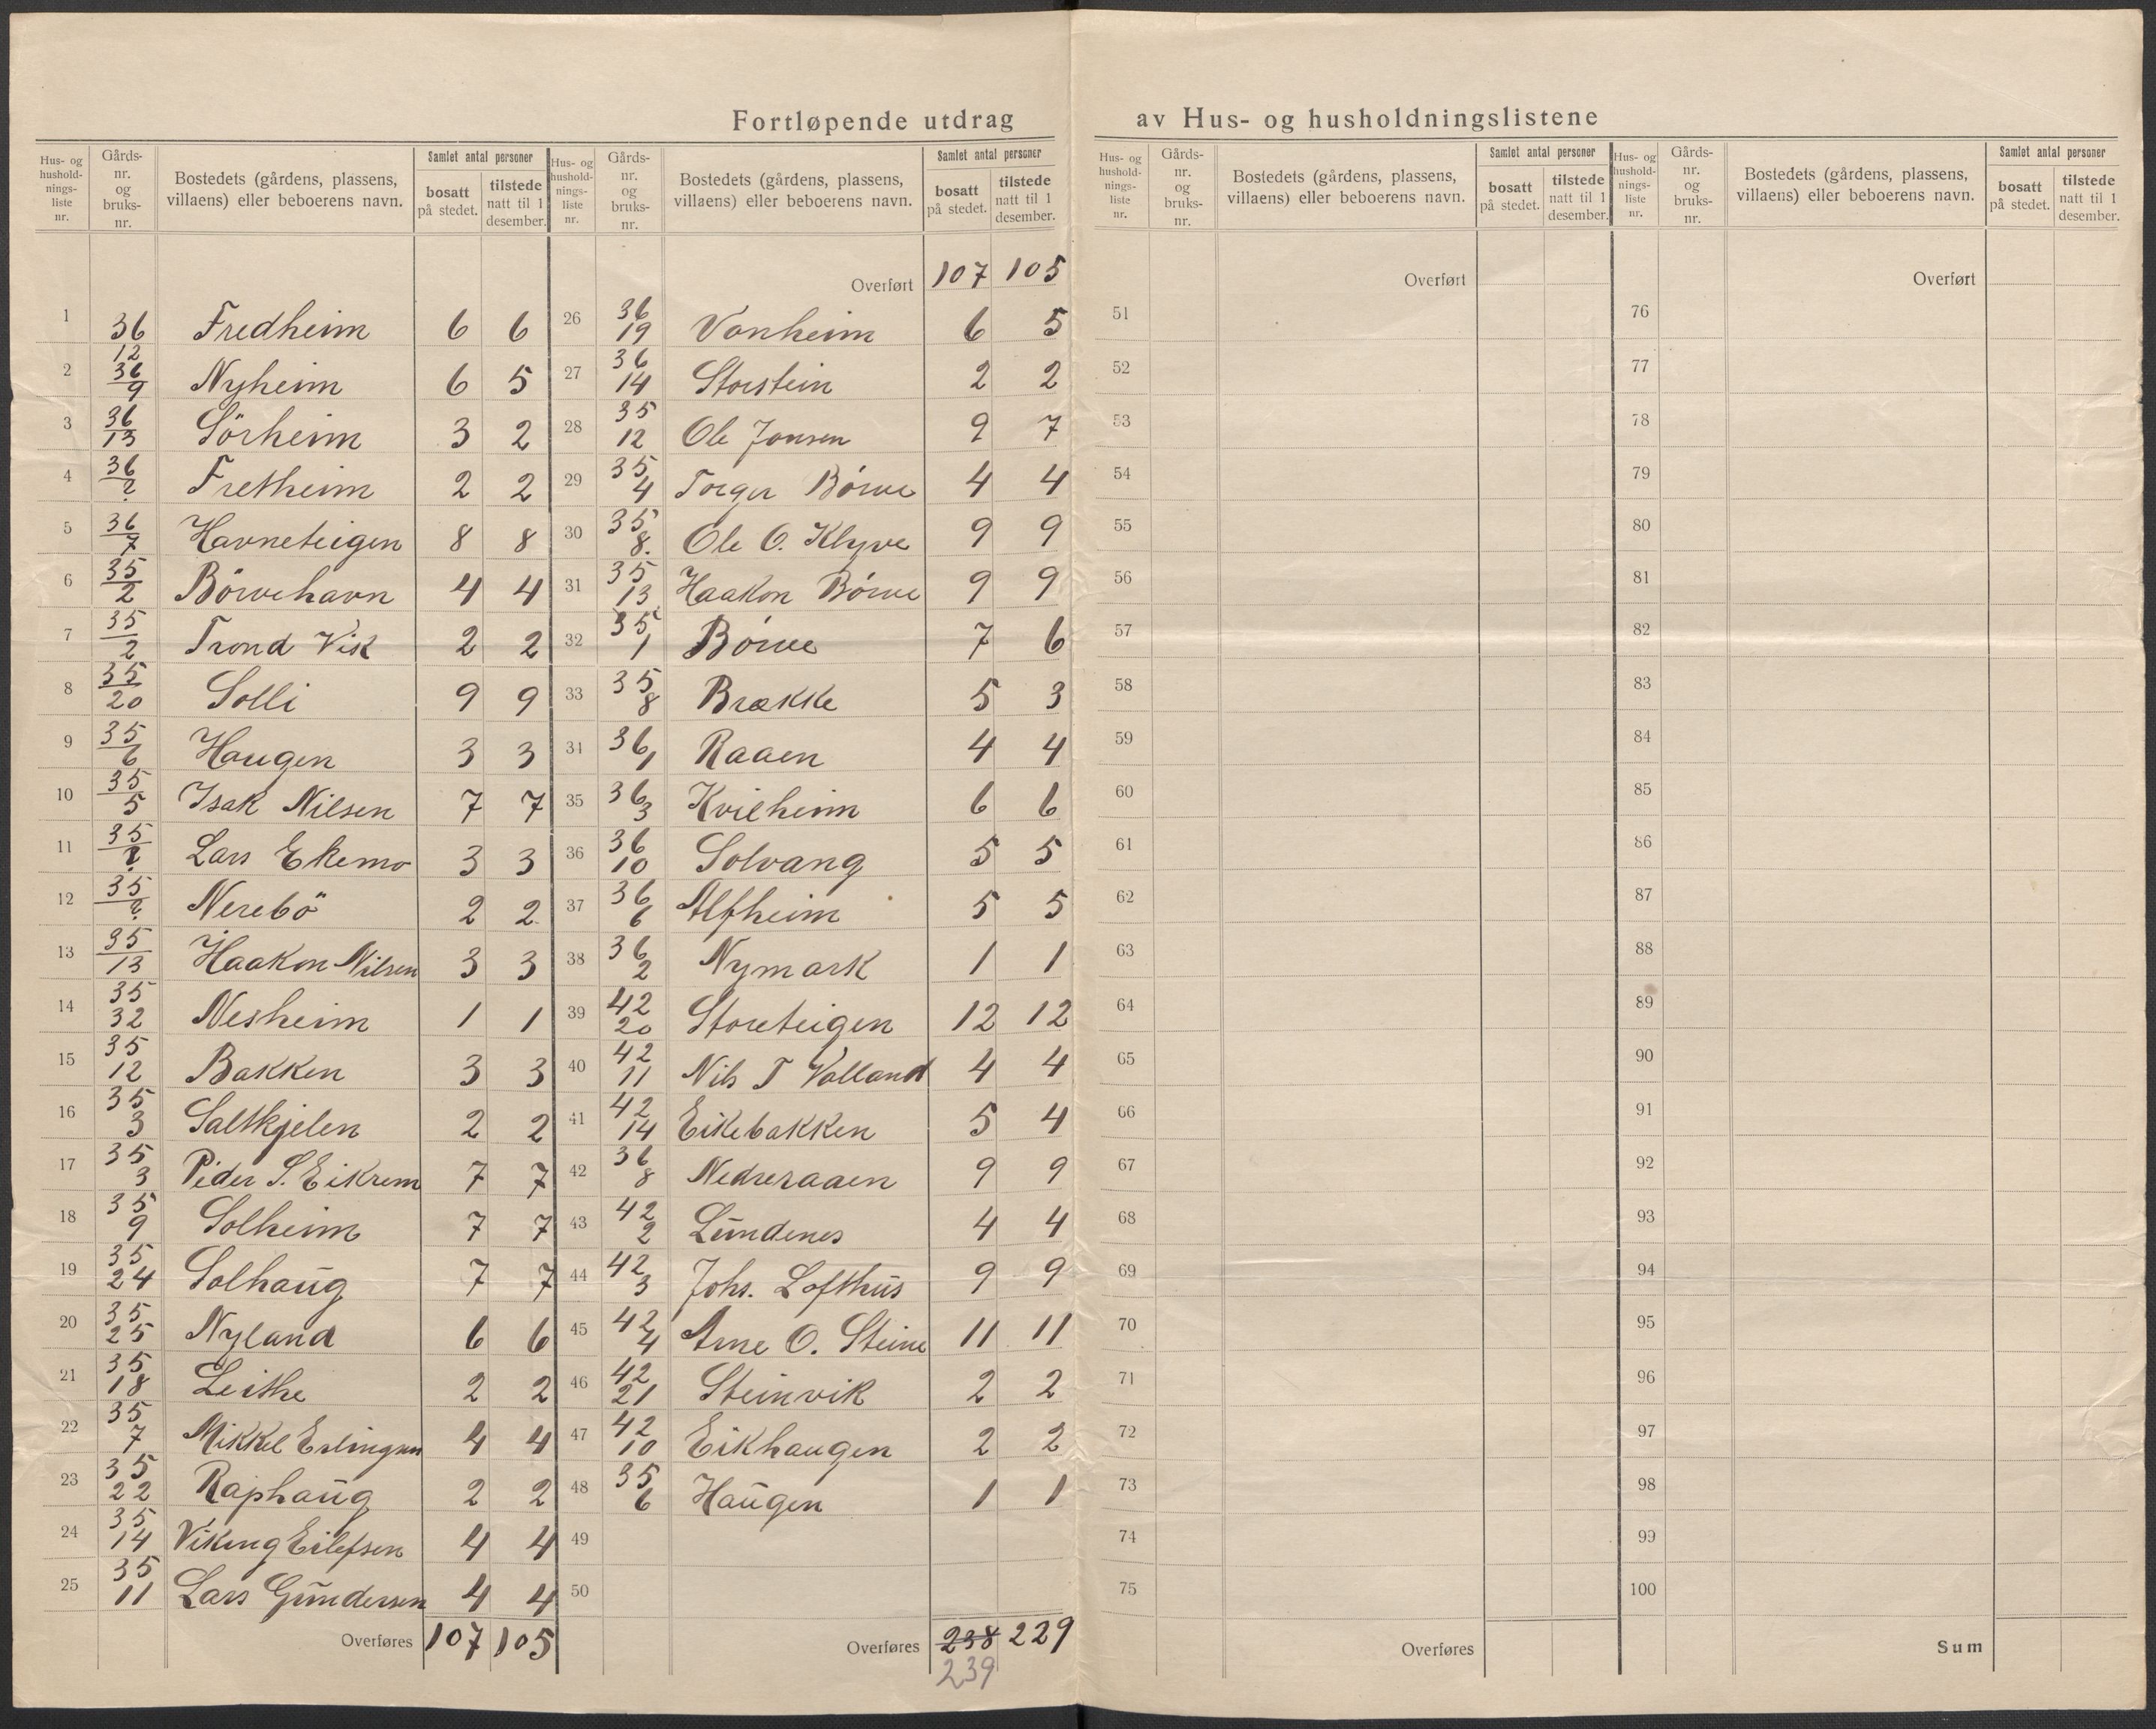 Fortløpende utdrag av Hus- og husholdningslistene
Hus- og hushold-nings-liste nr. Gårds-nr. og bruks-nr. Bostedets (gårdens, plassens, villaens) eller beboerens navn. Samlet antal personer bosatt på stedet. tilstede natt til 1 desember.
1 36 12 Fredheim 6 6
2 36 9 Nyheim 6 5
3 36 13 Sörheim 3 2
4 36 ? Fretheim 2 2
5 36 7 Havneteigen 8 8
6 35 2 Börvehavn 4 4
7 35 2 Trond Vik 2 2
8 35 20 Solli 9 9
9 35 6 Haugen 3 3
10 35 5 Isak Nilsen 7 7
11 35 ? Lars Ekemo 3 3
12 35 ? Nerebö 2 2
13 35 13 Haakon Nilsen 3 3
14 35 32 Nesheim 1 1
15 35 12 Bakken 3 3
16 35 3 Saltkjelen 2 2
17 35 3 Peder S. Eikrem 7 7
18 35 9 Solheim 7 7
19 35 24 Solhaug 7 7
20 35 25 Nyland 6 6
21 35 18 Leithe 2 2
22 35 7 Mikkel Erlingsen 4 4
23 35 22 Raphaug 2 2
24 35 14 Viking Eilefsen 4 4
25 35 11 Lars Gundersen 4 4
Overføres 107 105
Hus- og hushold-nings-liste nr. Gårds-nr. og bruks-nr. Bostedets (gårdens, plassens, villaens) eller beboerens navn. Samlet antal personer bosatt på stedet. tilstede natt til 1 desember.
Overført 107 105
26 36 19 Vonheim 6 5
27 36 14 Storstein 2 2
28 35 12 Ole Jonsen 9 7
29 35 4 Torger Börve 4 4
30 35 8. Ole O. Klyve 9 9
31 35 13 Haakon Börve 9 9
32 35 1 Börve 7 6
33 35 8 Brække 5 3
34 36 1 Raaen 4 4
35 36 3 Kvilheim 6 6
36 36 10 Solvang 5 5
37 36 6 Alfheim 5 5
38 36 2 Nymark 1 1
39 42 20 Storeteigen 12 12
40 42 11 Nils T Valland 4 4
41 42 14 Eikebakken 5 4
42 36 8 Nedreraaen 9 9
43 42 2 Lundenes 4 4
44 42 3 Johs. Lofthus 9 9
45 42 4 Arne O. Steine 11 11
46 42 21 Steinvik 2 2
47 42 10 Eikhaugen 2 2
48 35 6 Haugen 1 1
49
50
Overføres 238 229
239
Hus- og hushold-nings-liste nr. Gårds-nr. og bruks-nr. Bostedets (gårdens, plassens, villaens) eller beboerens navn. Samlet antal personer bosatt på stedet. tilstede natt til 1 desember.
Overført
51
52
53
54
55
56
57
58
59
60
61
62
63
64
65
66
67
68
69
70
71
72
73
74
75
Overføres
Hus- og hushold-nings-liste nr. Gårds-nr. og bruks-nr. Bostedets (gårdens, plassens, villaens) eller beboerens navn. Samlet antal personer bosatt på stedet. tilstede natt til 1 desember.
Overført
76
77
78
79
80
81
82
83
84
85
86
87
88
89
90
91
92
93
94
95
96
97
98
99
100
Sum